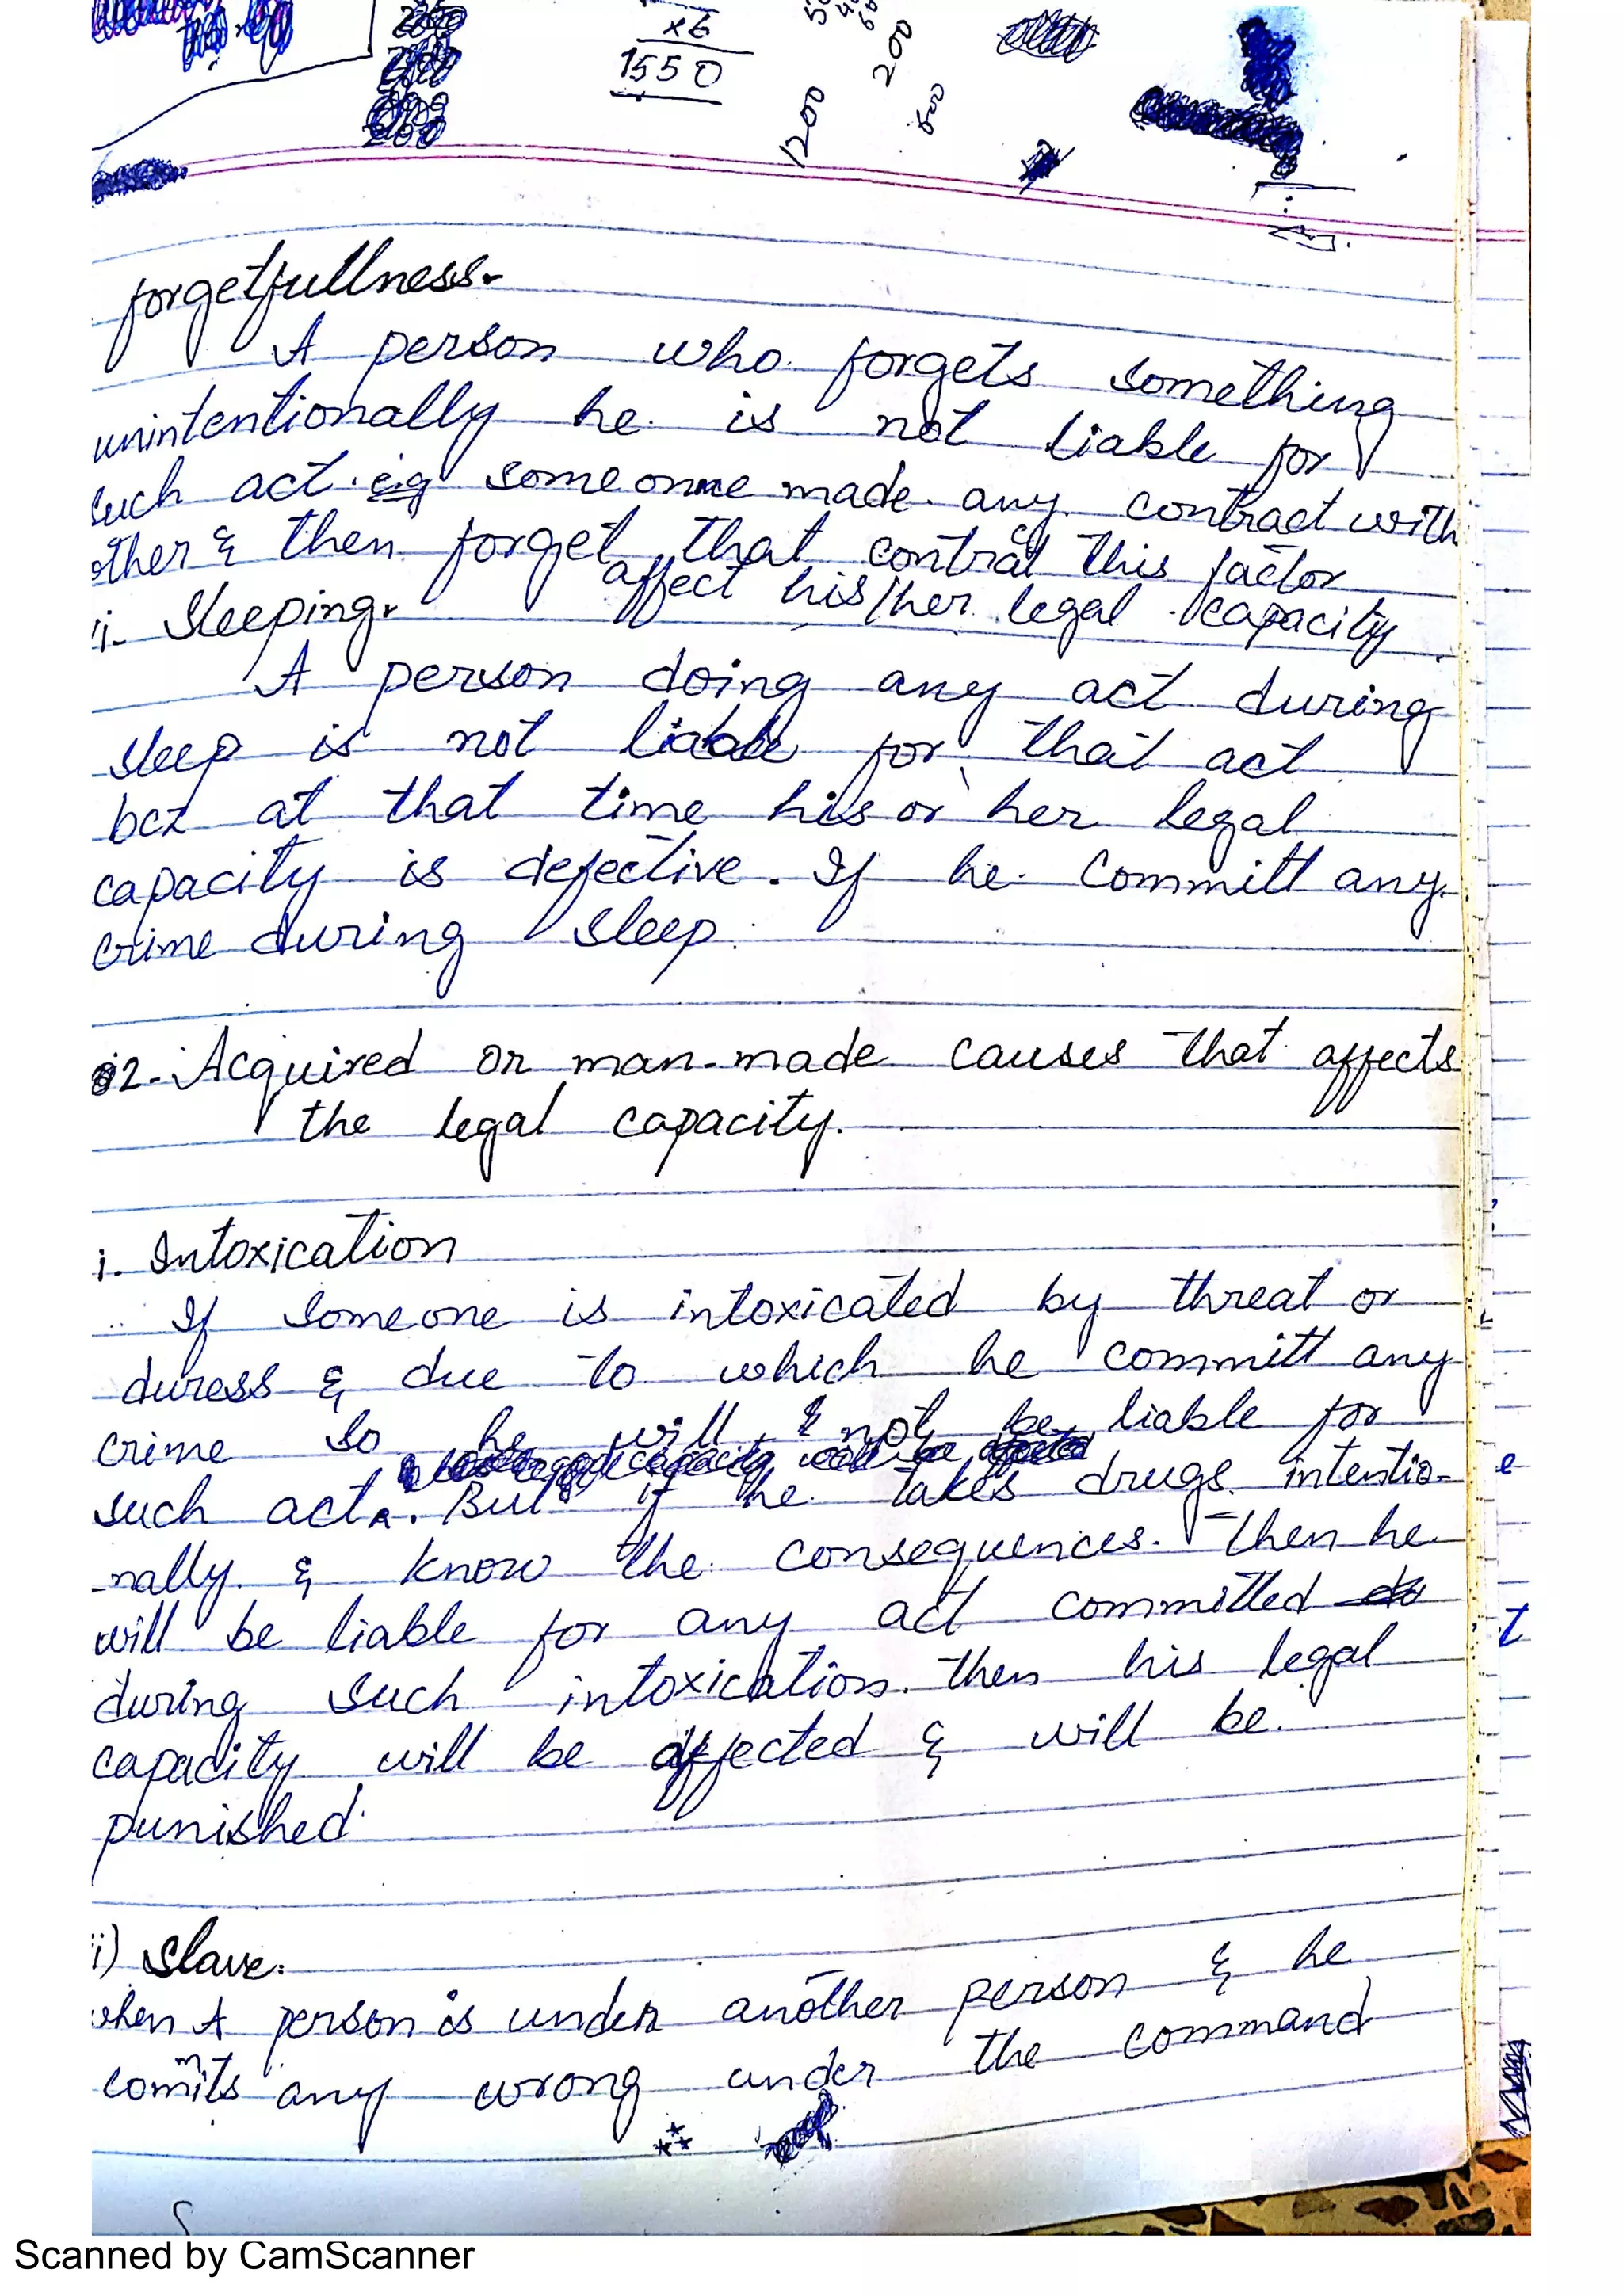 x6
1550
1200
200
600
200
forgetfullness.
A person who forgets something
unintentionally he is not liable for
such act. e.g someonne made any contract with
other & then forget that contract this factor
affect his/her legal capacity
ii. Sleeping.
A person doing any act during
sleep is not liable for that act
bcz at that time his or her legal
capacity is defective. If he committ any
crime during sleep.
2. Acquired or man-made causes that affects
the legal capacity.
i. Intoxication
If someone is intoxicated by threat or
duress & due to which he committ any
crime so he will not be liable for
such act. But if he takes drugs intentio-
-nally & know the consequences. Then he
will be liable for any act committed
during such intoxication. Then his legal
capacity will be affected & will be
punished.
ii) Slave:
when A person is under another person & he
commits any wrong under the command
Scanned by CamScanner